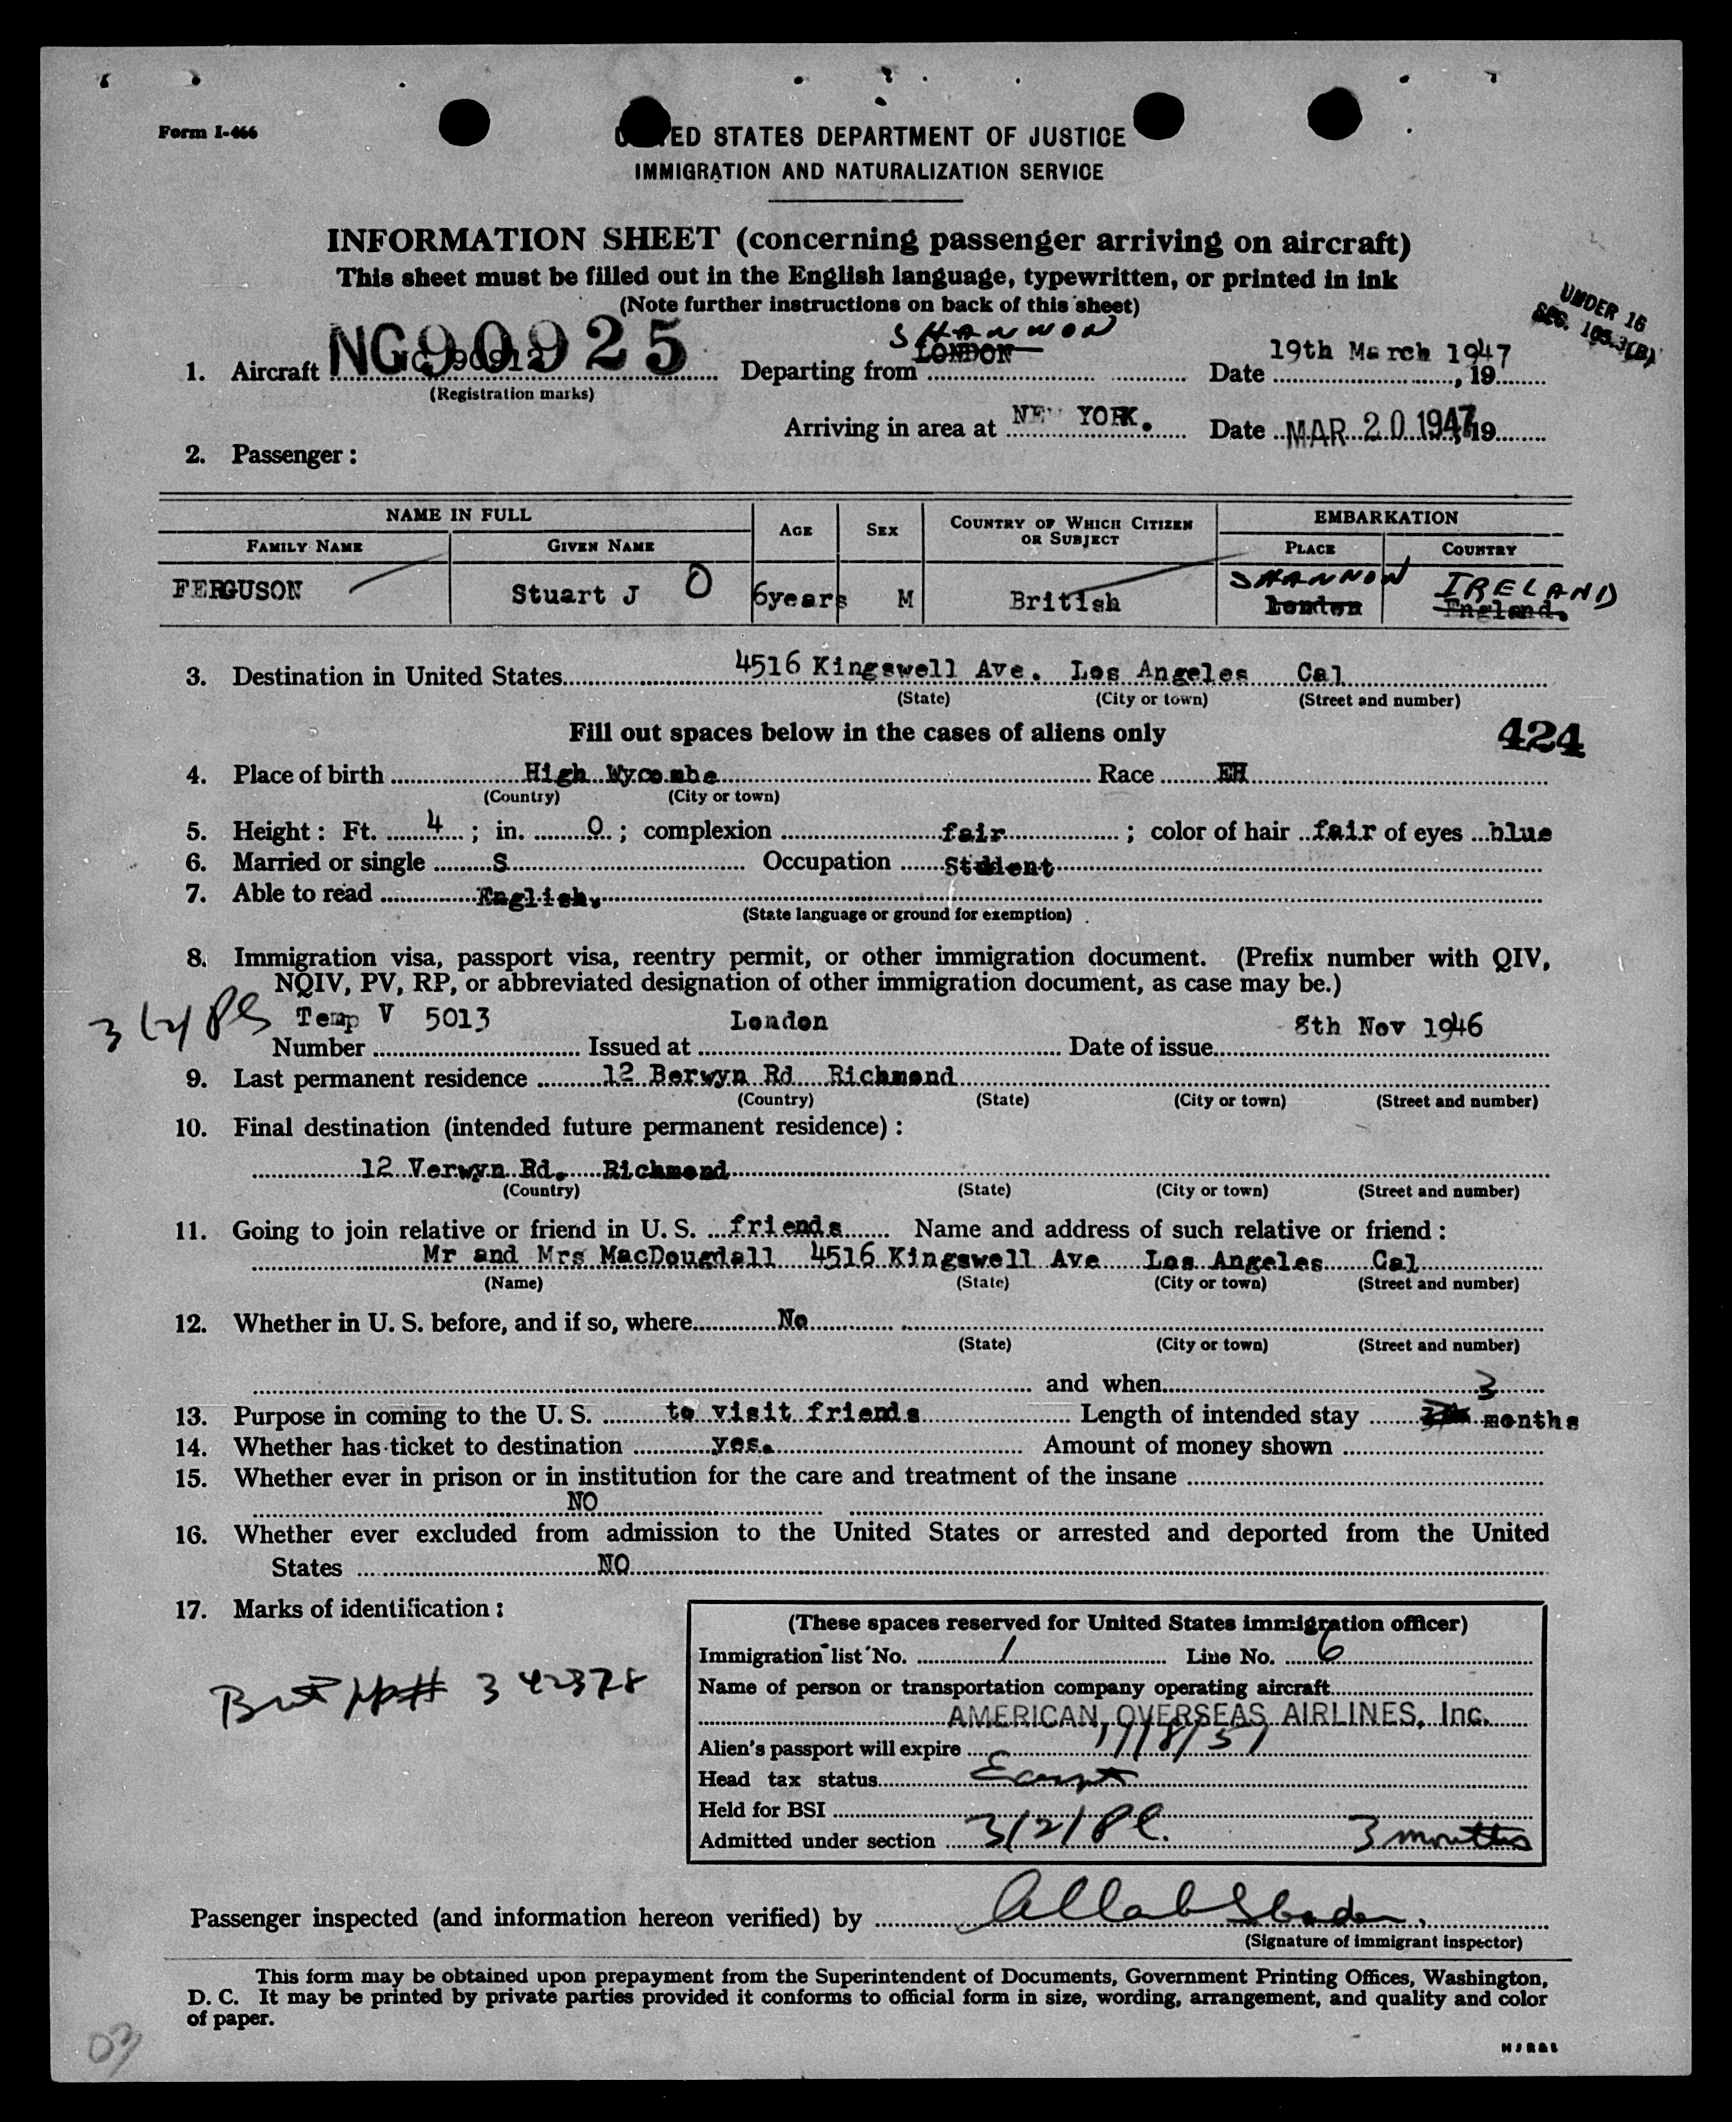 Form I-466
UNITED STATES DEPARTMENT OF JUSTICE
IMMIGRATION AND NATURALIZATION SERVICE
INFORMATION SHEET (concerning passenger arriving on aircraft)
This sheet must be filled out in the English language, typewritten, or printed in ink
(Note further instructions on back of this sheet)
UNDER 16
SEC. 105.3(B)
1. Aircraft NC90925 Departing from LONDON SHANNON Date 19th March 1947, 19
(Registration marks)
Arriving in area at NEW YORK. Date MAR 20 1947, 19
2. Passenger:
NAME IN FULL AGE SEX COUNTRY OF WHICH CITIZEN OR SUBJECT EMBARKATION
FAMILY NAME GIVEN NAME PLACE COUNTRY
SHANNON IRELAND
FERGUSON Stuart J O 6years M British London England.
3. Destination in United States 4516 Kingswell Ave. Los Angeles Cal
(State) (City or town) (Street and number)
Fill out spaces below in the cases of aliens only 424
4. Place of birth High Wycombe Race EH
(Country) (City or town)
5. Height: Ft. 4; in. 0; complexion fair; color of hair fair of eyes blue
6. Married or single S Occupation Student
7. Able to read English.
(State language or ground for exemption)
8. Immigration visa, passport visa, reentry permit, or other immigration document. (Prefix number with QIV,
NQIV, PV, RP, or abbreviated designation of other immigration document, as case may be.)
Temp V 5013 London 8th Nov 1946
Number Issued at Date of issue
9. Last permanent residence 12 Berwyn Rd Richmond
(Country) (State) (City or town) (Street and number)
10. Final destination (intended future permanent residence):
12 Verwyn Rd. Richmond
(Country) (State) (City or town) (Street and number)
11. Going to join relative or friend in U. S. friends Name and address of such relative or friend:
Mr and Mrs MacDougdall 4516 Kingswell Ave Los Angeles Cal
(Name) (State) (City or town) (Street and number)
12. Whether in U. S. before, and if so, where No
(State) (City or town) (Street and number)
and when
13. Purpose in coming to the U. S. to visit friends Length of intended stay 3 months
14. Whether has ticket to destination yes. Amount of money shown
15. Whether ever in prison or in institution for the care and treatment of the insane
NO
16. Whether ever excluded from admission to the United States or arrested and deported from the United
States NO
17. Marks of identification:
Brit pp# 342378
(These spaces reserved for United States immigration officer)
Immigration list No. 1 Line No. 6
Name of person or transportation company operating aircraft
AMERICAN OVERSEAS AIRLINES, Inc.
Alien's passport will expire 11/8/51
Head tax status Exempt
Held for BSI
Admitted under section 3/2/ 3 months
Passenger inspected (and information hereon verified) by
(Signature of immigrant inspector)
This form may be obtained upon prepayment from the Superintendent of Documents, Government Printing Offices, Washington,
D. C. It may be printed by private parties provided it conforms to official form in size, wording, arrangement, and quality and color
of paper.
03